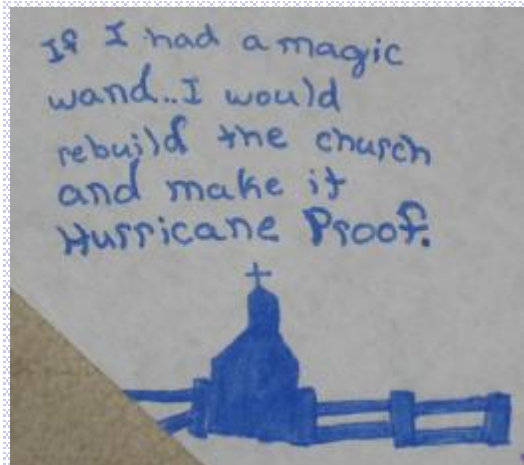 If I had a magic
wand..I would
rebuild the church
and make it
Hurricane Proof.